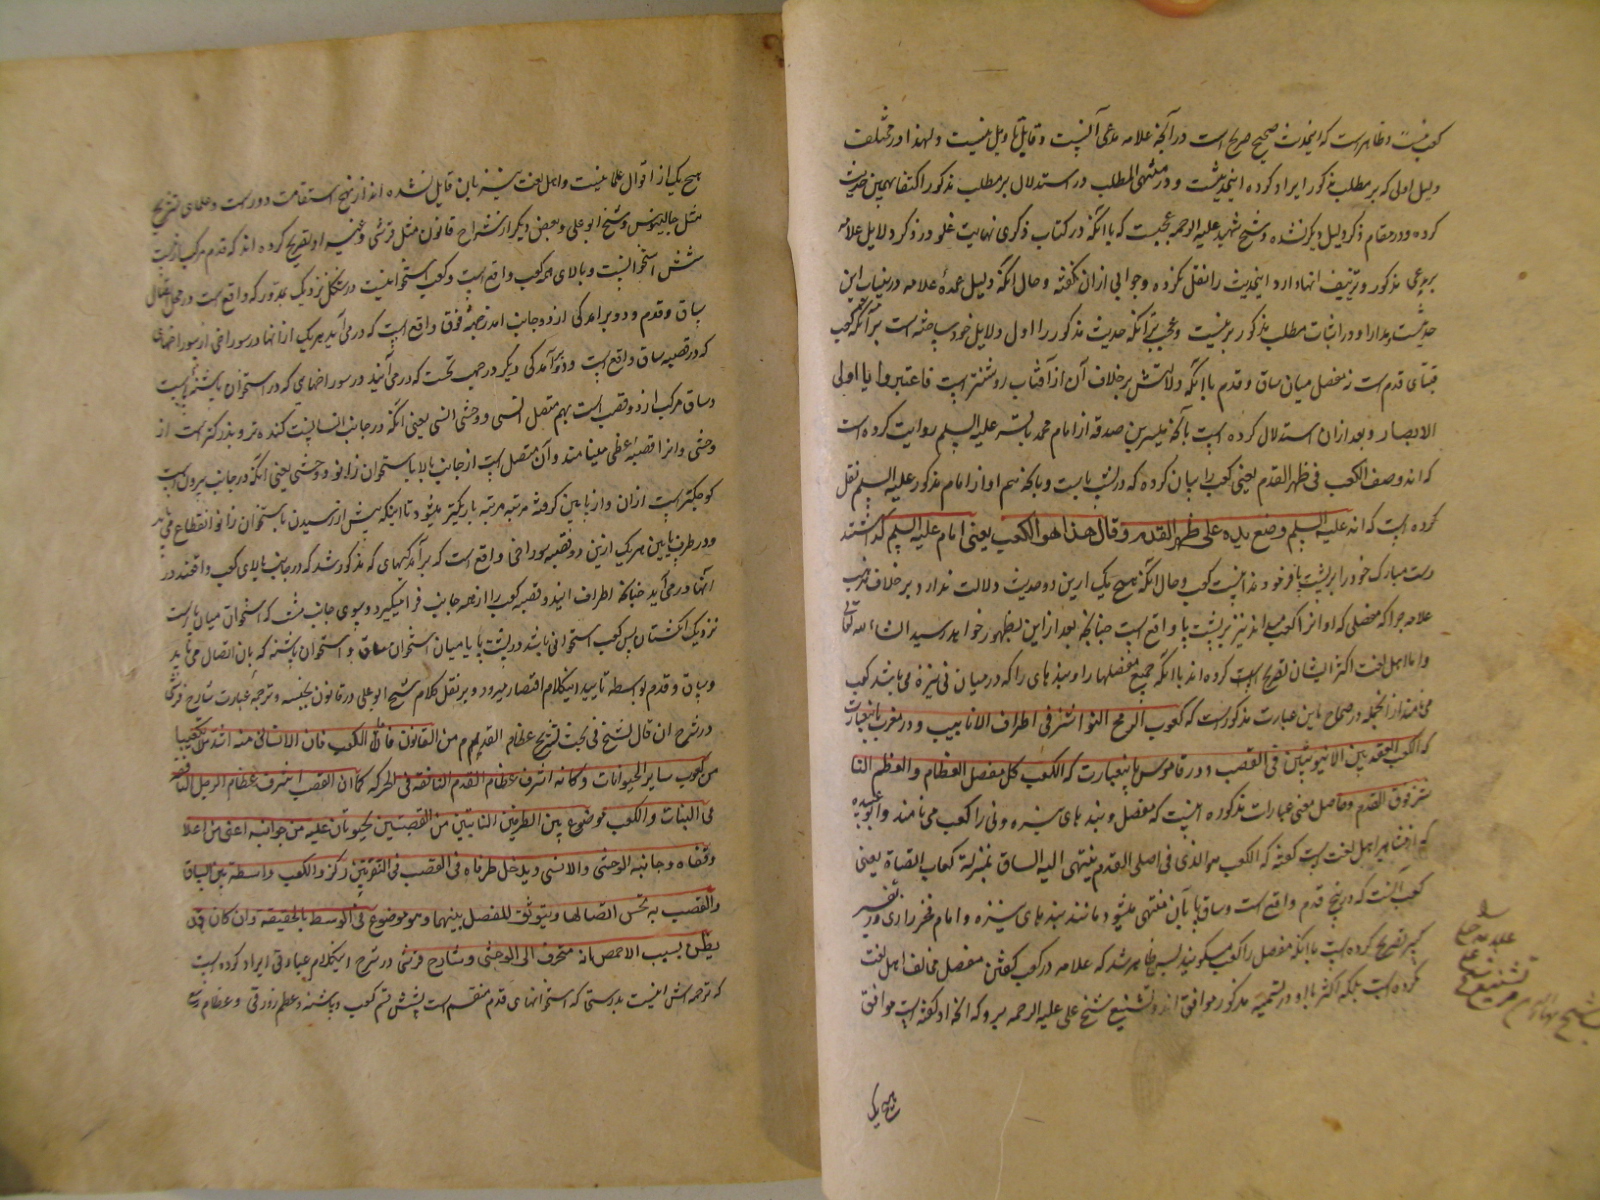 کعب نیست و ظاهر است که این حدیث صحیح صریح است در آنچه علامه مدعی آنست و قابل تاویل نیست و لهذا در مختلف
دلیل اولی که بر مطلب مذکور ایراد کرده این حدیث است و در منتهی المطلب در استدلال بر مطلب مذکور اکتفا بهمین حدیث
کرده و در مقام ذکر دلیل دیگر نشده و شیخ شهید علیه الرحمه عجبست که با آنکه در کتاب ذکری نهایت غلو در ذکر دلایل علامه
بر دعوی مذکور و تزییف انها دارد این حدیث را نقل نکرده و جوابی از ان نگفته و حال آنکه دلیل عمدهٔ علامه در ینباب این
حدیثست و در اثبات مطلب مذکور و عجب تر آنکه حدیث مذکور را اول دلایل خود ساخته است بر آنکه کعب
قبتای قدم است نه مفصل میان ساق و قدم با آنکه دلالتش بر خلاف آن از آفتاب روشنتر است فاعتبروا یا اولی
الابصار و بعد ازان استدلال کرده است بآنکه میسر بن صدقه از امام محمد باقر علیه السلم روایت کرده است
که انه وصف الکعب فی ظهر القدم یعنی کعب را بیان کرده که در پشت پاست و بآنکه هم او از امام مذکور علیه السلم نقل
کرده است که انه علیه السلم وضع یده علی ظهر القدم و قال هذا هو الکعب یعنی امام علیه السلم گذاشتند
دست مبارک خود را بر پشت پا و فرمودند اینست کعب و حال آنکه هیچ یک ازین دو حدیث دلالت ندارد بر خلاف مذهب
علامه چرا که مفصلی که او انرا کعب میداند نیز بر پشت پا واقع است چنانچه بعد از این بظهور خواهد رسید انشاء الله تعالی
و اما اهل لغت اکثر ایشان تصریح کرده اند با آنکه جمیع مفصلها را و بندهای را که در میان نی نیزه می باشد کعب
می نامند از انجمله در صحاح باین عبارت مذکور است که کعوب الرمح النواشز فی اطراف الانابیب و در مغرب باینعبارت
که الکعب العقدة بین الانبوبتین فی القصب و در قاموس باینعبارت که الکعب کل مفصل العظام و العظم الناشز
فوق القدم و حاصل معنی عبارات مذکوره اینست که مفصل و بندهای نیزه و نی را کعب می نامند و ابو عبیده
که از مشاهیر اهل لغت است گفته که الکعب هو الذی فی اصل القدم ینتهی الیه الساق بمنزلة کعاب القناة یعنی
کعب آنست که در بیخ قدم واقع است و ساق پا بآن منتهی میشود مانند بندهای نیزه و امام فخر رازی در تفسیر
کبیر تصریح کرده است بآنکه مفصل را کعب میگویند پس ظاهر شد که علامه در کعب گفتن مفصل مخالف اهل لغت
نکرده است بلکه اکثر با او در تسمیه مذکور موافق اند و تشنیع شیخ علی علیه الرحمه بر او که آنچه او گفته است موافق
هیچ یک
هیچ یک از اقوال علما نیست و اهل لغت نیز بان قایل نشده اند از نهج استقامت دور است و علمای تشریح
مثل جالینوس و شیخ ابو علی و بعضی دیگر از شراح قانون مثل قرشی و غیره او تصریح کرده اند که قدم مرکب از بیست
شش استخوانست و بالای همه کعب واقع است و کعب استخوانیست در شکل نزدیک بمدور که واقع است در محل اتصال
ساق و قدم و دو برآمدگی از دو جانب فوق واقع است که در می آید هر یک از انها در سوراخی از سوراخهای
که در قصبه ساق واقع است و دو برآمدگی دیگر در جهت تحت که در می آیند در سوراخهای که در استخوان پاشنه است
و ساق مرکب از دو قصب است بهم متصل انسی و وحشی انسی یعنی آنکه در جانب انسانیست کنده تر و بزرکتر است از
وحشی و انرا قصبه عظمی مینامند و آن متصل است از جانب بالا باستخوان زانو و وحشی یعنی آنکه در جانب بیرونست
کوچکتر است ازان و از پایین گرفته مرتبه مرتبه باریکتر میشود تا اینکه پیش از رسیدن باستخوان زانو انقطاع می یابد
و در طرف پایین هر یک ازین دو قصبه سوراخی واقع است که برآمدگیهای که مذکور شد که در جانب بالای کعب واقعند در
انها در می آید چنانکه اطراف این دو قصبه کعب را از همه جانب فرا میگیرد و بسوی جانب پشت که استخوان میان پا است
نزدیک انگشتان پس کعب استخوانی باشد در پشت پا یا میان استخوان ساق و استخوان پاشنه که بان اتصال می یابد
و ساق و قدم بواسطه تایید اینکلام اقتصار میرود بر نقل کلام شیخ ابو علی در قانون بجنسه و ترجمه عبارت شارح قرشی
در شرح ان قال الشیخ فی بحث تشریح عظام القدم من القانون فان الکعب فان الانسانی منه اشد تکعیبا
من کعوب سایر الحیوانات و کانه اشرف عظام القدم النافعة فی الحرکه کما ان العقب اشرف عظام الرجل النافعه
فی الثبات و الکعب موضوع بین الطرفین الناتیین من القصبتین یحتویان علیه من جوانبه اعنی من اعلا
و قفاه و جانبیه الوحشی و الانسی و یدخل طرفاه فی العقب فی النقرتین رکز و الکعب واسطه بین الساق
والعقب به یحسن اتصالهما و یتوثق المفصل بینهما و هو موضوع فی الوسط بالحقیقه و ان کان قد
یظن بسبب الاخمص انه منحرف الی الوحشی و شارح قرشی در شرح اینکلام عبارتی ایراد کرده است
که ترجمه اش اینست بدرستی که استخوانهای قدم منقسم است بشش قسم کعب و پاشنه و عظم زورقی و عظام رسغ